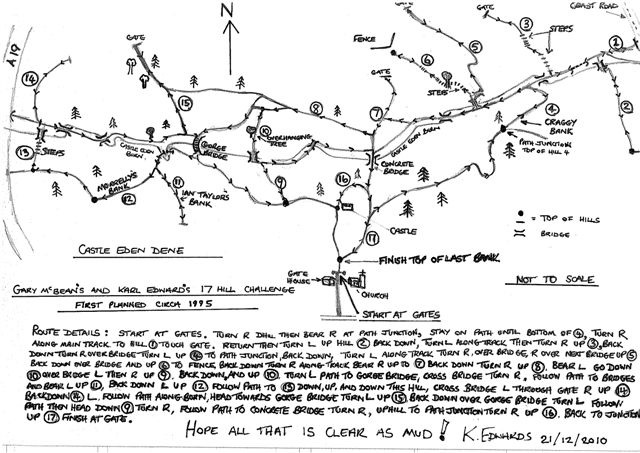 N
COAST ROAD
GATE
FENCE
STEPS
A19
14
15
8
7
6
5
3
STEPS
2
1
GATE
STEPS
CASTLE EDEN BURN
GORGE BRIDGE
10
OVERHANGING TREE
CASTLE EDEN BURN
4
CRAGGY BANK
PATH JUNCTION TOP OF HILL 4
13
STEPS
MCBREELY'S BANK
12
11
IAN TAYLOR'S BANK
9
16
CONCRETE BRIDGE
CASTLE
17
= TOP OF HILLS
= BRIDGE
CASTLE EDEN DENE
FINISH TOP OF LAST BANK
GATE HOUSE
CHURCH
NOT TO SCALE
GARY McBEAN'S AND KARL EDWARD'S 17 HILL CHALLENGE
FIRST PLANNED CIRCA 1995
START AT GATES
ROUTE DETAILS: START AT GATES. TURN R DHL THEN BEAR R AT PATH JUNCTION, STAY ON PATH UNTIL BOTTOM OF 4, TURN R
ALONG MAIN TRACK TO HILL 1 TOUCH GATE. RETURN THEN TURN L UP HILL 2 BACK DOWN, TURN L ALONG TRACK THEN TURN R UP 3, BACK
DOWN TURN R OVER BRIDGE TURN L UP 4 TO PATH JUNCTION, BACK DOWN, TURN L ALONG TRACK TURN R, OVER BRIDGE, R OVER NEXT BRIDGE UP 5
BACK DOWN OVER BRIDGE AND UP 6 TO FENCE, BACK DOWN TURN R ALONG TRACK BEAR R UP TO 7 BACK DOWN TURN R UP 8, BEAR L GO DOWN
10 OVER BRIDGE L THEN R UP 9, BACK DOWN, AND UP 10. TURN L PATH TO GORGE BRIDGE, CROSS BRIDGE TURN R, FOLLOW PATH TO BRIDGES
AND BEAR L UP 11, BACK DOWN L UP 12 FOLLOW PATH TO 13 DOWN, UP, AND DOWN THIS HILL, CROSS BRIDGE L THROUGH GATE R UP 14
BACK DOWN 14 L. FOLLOW PATH ALONG BORN, HEAD TOWARDS GORGE BRIDGE TURN L UP 15 BACK DOWN OVER GORGE BRIDGE TURN L FOLLOW
PATH THEN HEAD DOWN 9 TURN R, FOLLOW PATH TO CONCRETE BRIDGE TURN R, UP HILL TO PATH JUNCTION TURN R UP 16. BACK TO JUNCTION
UP 17 FINISH AT GATE.
HOPE ALL THAT IS CLEAR AS MUD! K. EDWARDS 21/12/2010